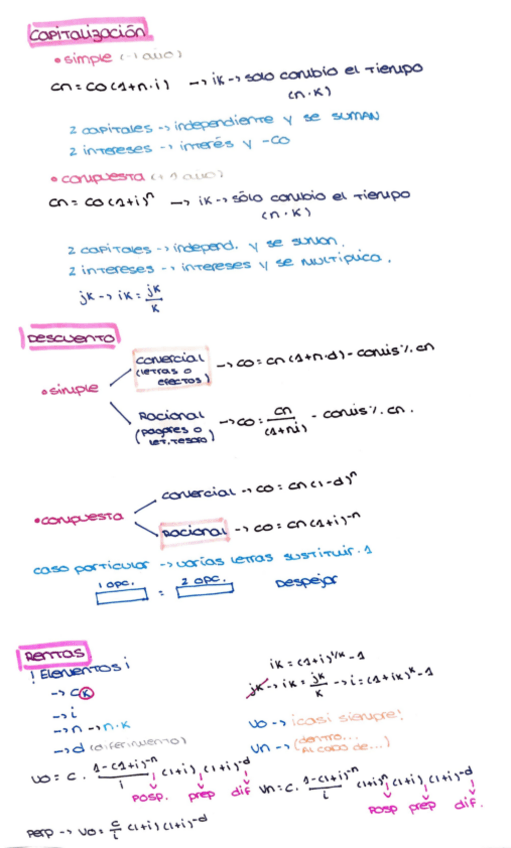 Capitalización
• simple (-1 año)
cn = co (1+n·i) → ik → solo cambio el tiempo
(n·k)
2 capitales → independiente y se SUMAN
2 intereses → interés y -co
• compuesta (+1 año)
cn = co (1+i)ⁿ → ik → sólo cambio el tiempo
(n·k)
2 capitales → independ. y se suman.
2 intereses → intereses y se multiplica.
jk → ik = jk/k
Descuento
• simple
comercial (letras o efectos) → co = cn (1+n·d) - comis%. cn
Racional (pagares o let. tesoro) → co = cn/(1+ni) - comis%. cn.
• compuesta
comercial → co = cn (1-d)ⁿ
Racional → co = cn (1+i)⁻ⁿ
caso particular → varias letras sustituir. 1
1 opc. = 2 opc. Despejar
Rentas
¡Elementos!
→ ck
→ i
→ n → n·k
→ d (diferimiento)
ik = (1+i)^1/k - 1
jk → ik = jk/k → i = (1+ik)^k - 1
Vo → ¡casi siempre!
Vn → (dentro... Al cabo de...)
Vo = c · 1-(1+i)⁻ⁿ/i (1+i) (1+i)^-d
posp. prep dif
Vn = c · 1-(1+i)⁻ⁿ/i (1+i)ⁿ (1+i) (1+i)^-d
posp prep dif.
Perp → Vo = c/i (1+i) (1+i)^-d